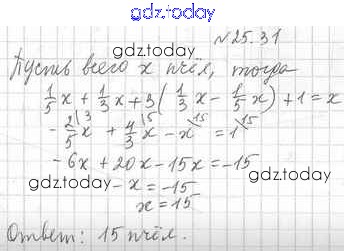 gdz.today
№25.31
gdz.today
Пусть всего x пчёл, тогда
1/5 x + 1/3 x + 3(1/3 x - 1/5 x) + 1 = x
- 2/5 x \3 + 4/3 x \5 - x \15 = 1 \15
gdz.today
- 6x + 20x - 15x = -15
gdz.today gdz.today
- x = -15
x = 15
Ответ: 15 пчёл.
gdz.today